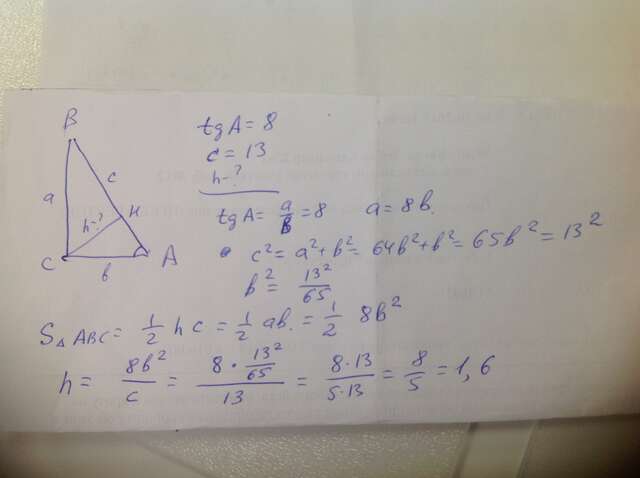 B
tg A = 8
c = 13
h - ?
a
c
h-?
H
C
b
A
tg A = a/b = 8   a = 8b.
c² = a² + b² = 64b² + b² = 65b² = 13²
b² = 13²/65
S△ABC = 1/2 h c = 1/2 ab. = 1/2 8b²
h = 8b²/c = (8 · 13²/65)/13 = 8·13/5·13 = 8/5 = 1,6